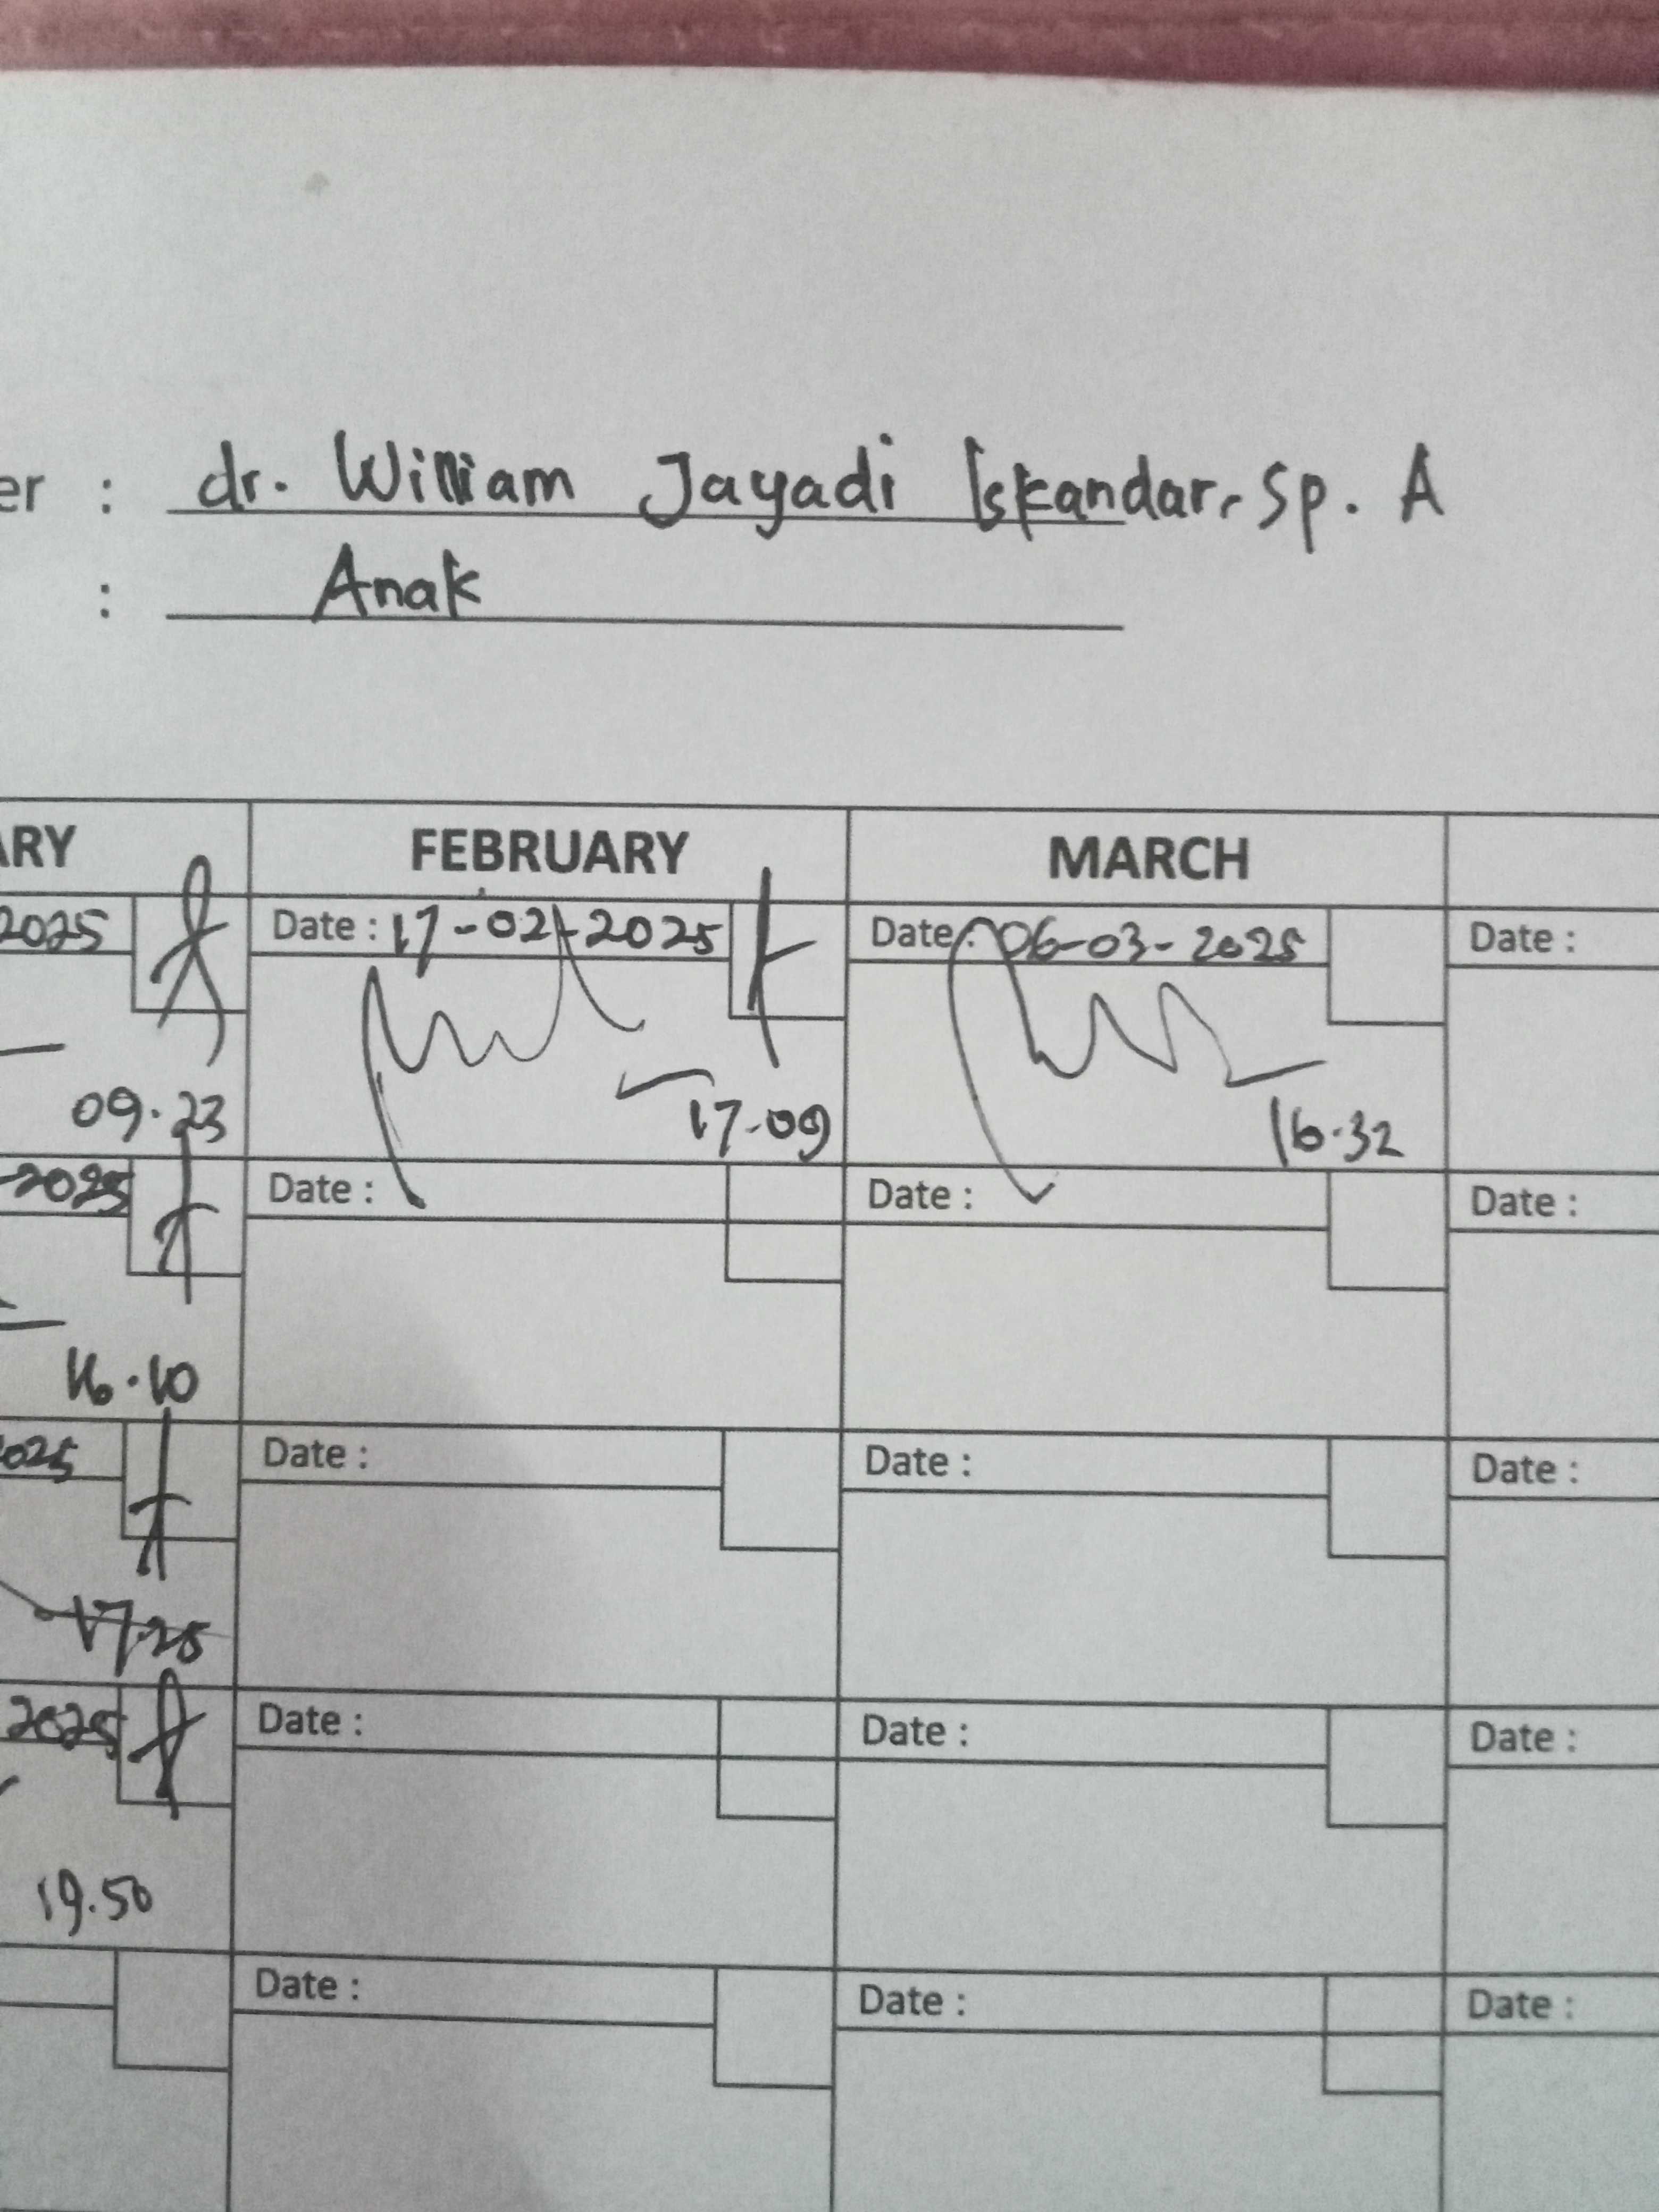 er : dr. William Jayadi Iskandar, Sp. A
: Anak
ARY FEBRUARY MARCH
2025 Date : 17-02-2025 Date : 06-03-2025 Date :
09.23 17.09 16.32
-2025 Date : Date : Date :
16.10
2025 Date : Date : Date :
17.25
2025 Date : Date : Date :
19.50
Date : Date : Date :